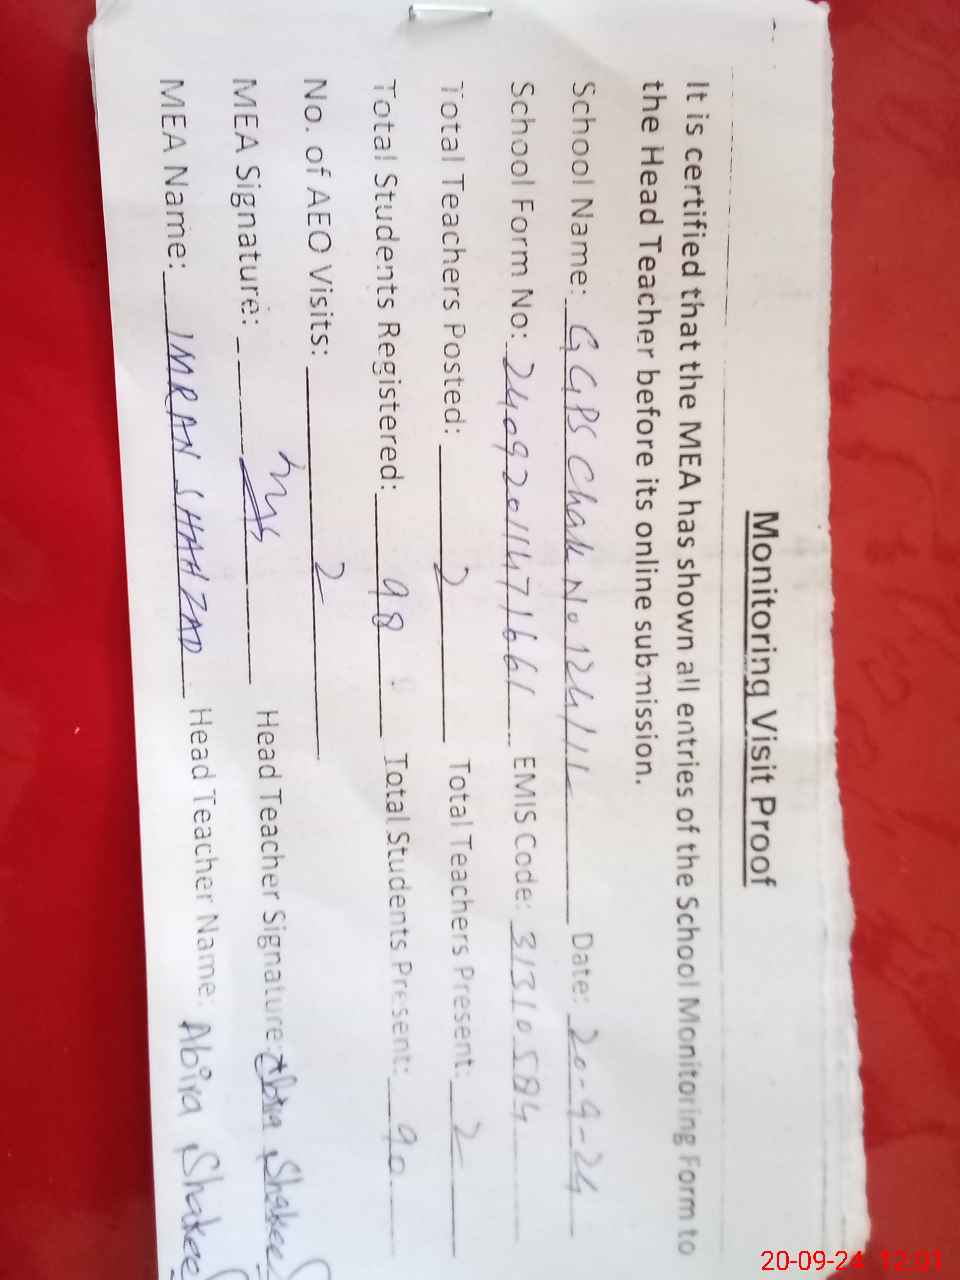 Monitoring Visit Proof
It is certified that the MEA has shown all entries of the School Monitoring Form to
the Head Teacher before its online submission.
School Name: GGPS Chak No 124/1L Date: 20-9-24
School Form No: 24092011471661 EMIS Code: 31310584
Total Teachers Posted: 2 Total Teachers Present: 2
Total Students Registered: 98 Total Students Present: 90
No. of AEO Visits: 2
MEA Signature: Head Teacher Signature: Abira Shakee
MEA Name: IMRAN SHAHZAD Head Teacher Name: Abira Shakee
20-09-24 12:01